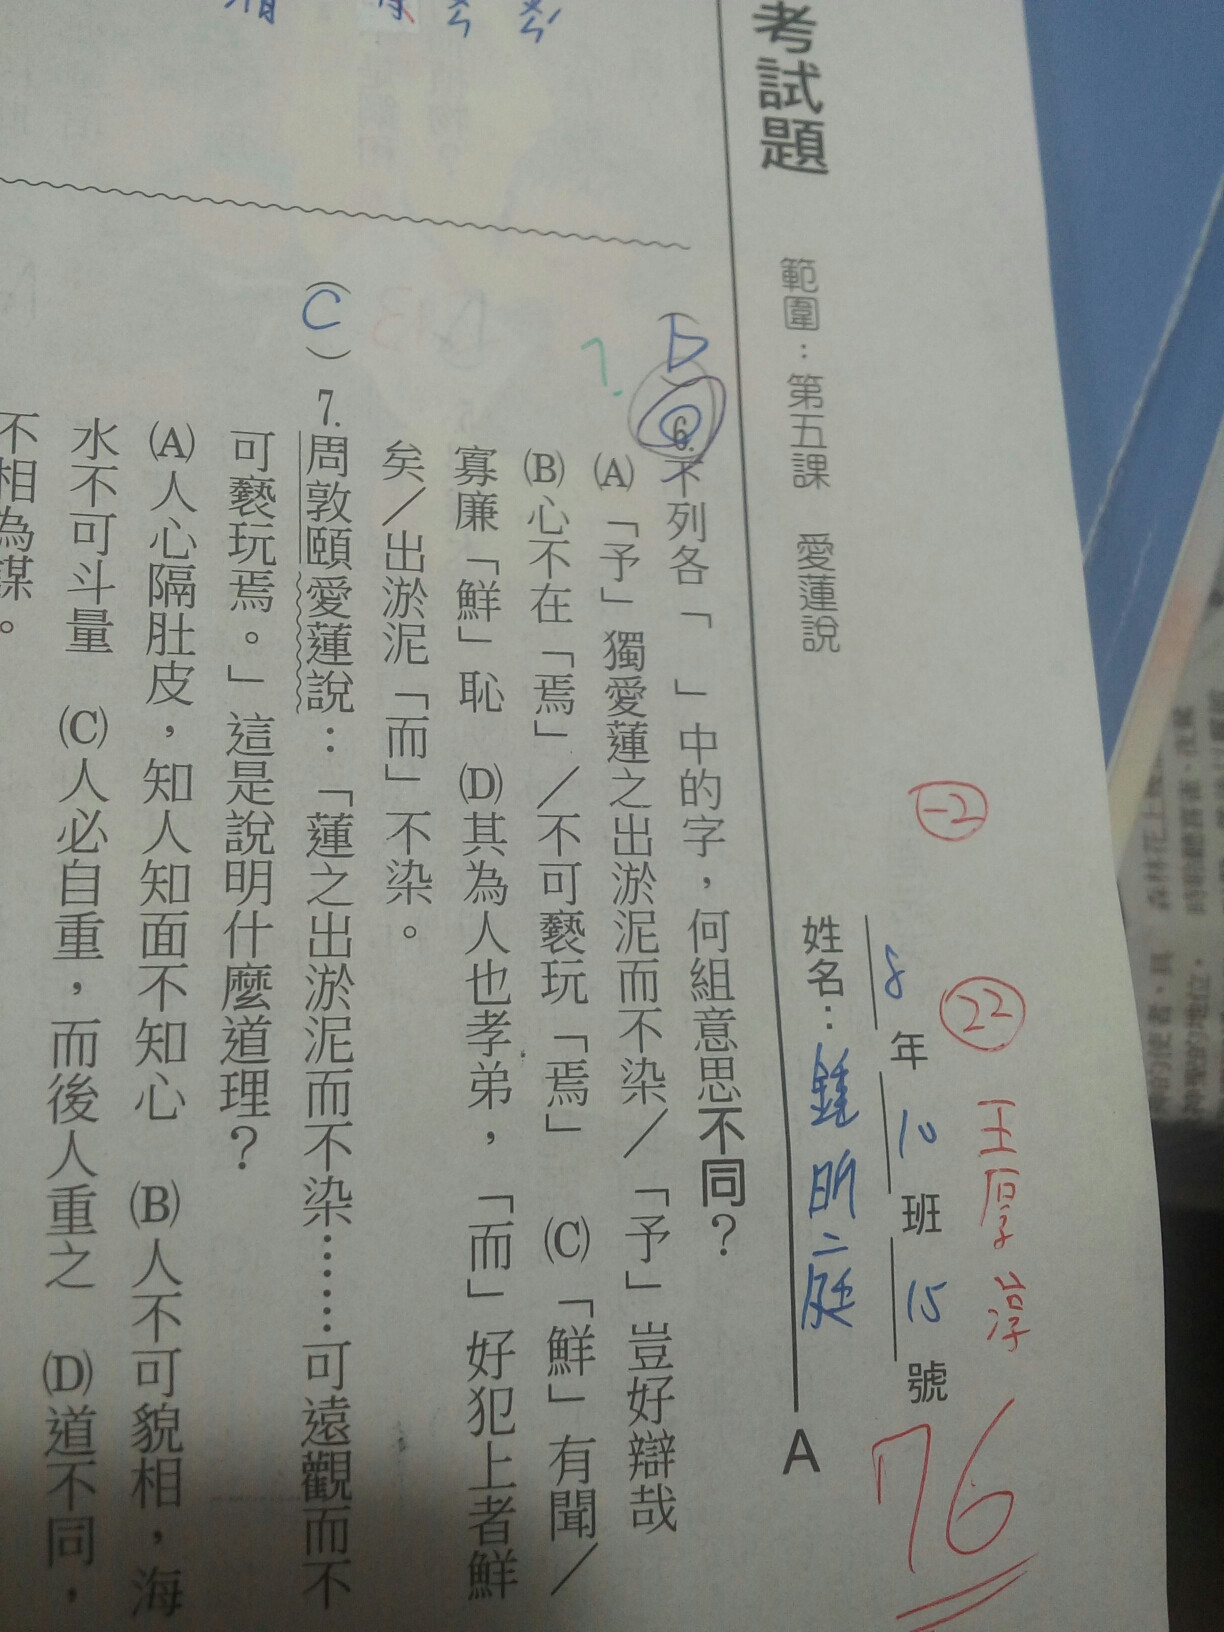 考試題 範圍：第五課 愛蓮說
-2
22
8年10班15號
姓名：
76
A
6.下列各「 」中的字，何組意思不同？
(A)「予」獨愛蓮之出淤泥而不染／「予」豈好辯哉
(B)心不在「焉」／不可褻玩「焉」 (C)「鮮」有聞／
寡廉「鮮」恥 (D)其為人也孝弟，「而」好犯上者鮮
矣／出淤泥「而」不染。
(C) 7.周敦頤愛蓮說：「蓮之出淤泥而不染……可遠觀而不
可褻玩焉。」這是說明什麼道理？
(A)人心隔肚皮，知人知面不知心 (B)人不可貌相，海
水不可斗量 (C)人必自重，而後人重之 (D)道不同，
不相為謀。